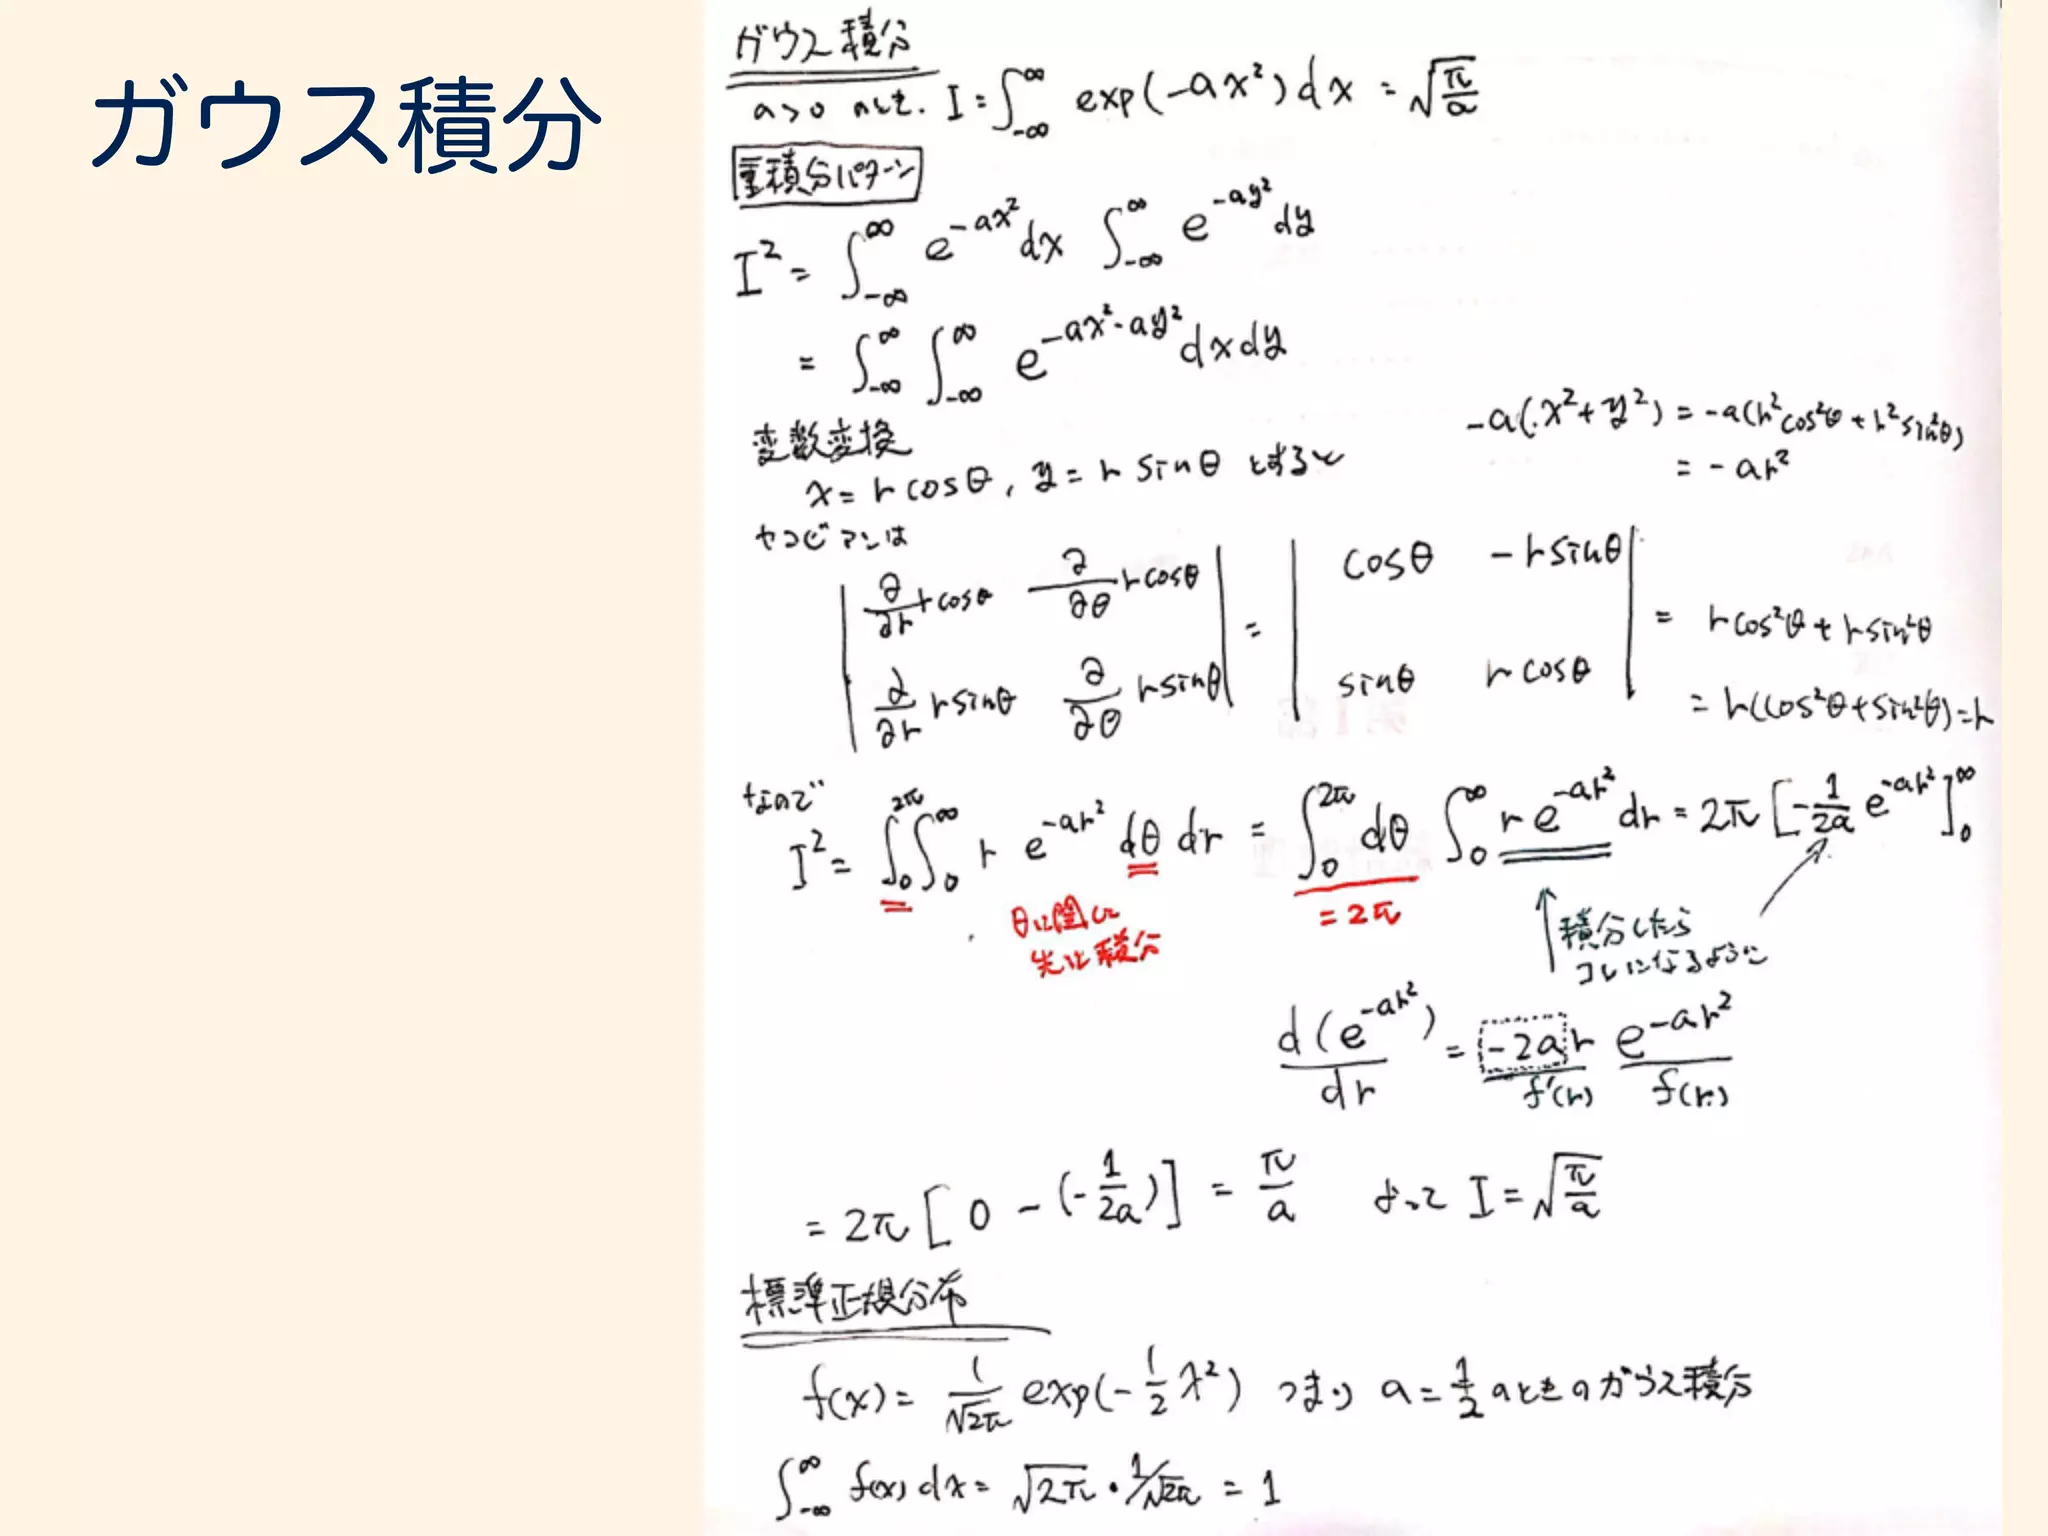 ガウス積分
ガウス積分
a>0 のとき. I = ∫_{-∞}^{∞} exp(-ax²)dx = √(π/a)
重積分パターン
I² = ∫_{-∞}^{∞} e^{-ax²}dx ∫_{-∞}^{∞} e^{-ay²}dy
= ∫_{-∞}^{∞} ∫_{-∞}^{∞} e^{-ax²-ay²}dxdy
変数変換
x = r cosθ, y = r sinθ とすると
-a(x²+y²) = -a(r²cos²θ + r²sin²θ)
= -ar²
ヤコビアンは
| ∂/∂r rcosθ ∂/∂θ rcosθ | = | cosθ -rsinθ | = rcos²θ + rsin²θ
| ∂/∂r rsinθ ∂/∂θ rsinθ | | sinθ rcosθ | = r(cos²θ+sin²θ)=r
なので
I² = ∫_0^{2π} ∫_0^∞ r e^{-ar²} dθ dr = ∫_0^{2π} dθ ∫_0^∞ r e^{-ar²} dr = 2π [-1/2a e^{-ar²}]_0^∞
θに関して
先に積分
= 2π
積分したら
コレになるように
d(e^{-ar²})/dr = -2ar e^{-ar²}
f'(r) f(r)
= 2π [0 - (-1/2a)] = π/a よって I = √(π/a)
標準正規分布
f(x) = 1/√2π exp(-1/2 x²) つまり a = 1/2 のときのガウス積分
∫_{-∞}^{∞} f(x) dx = √2π・1/√2π = 1